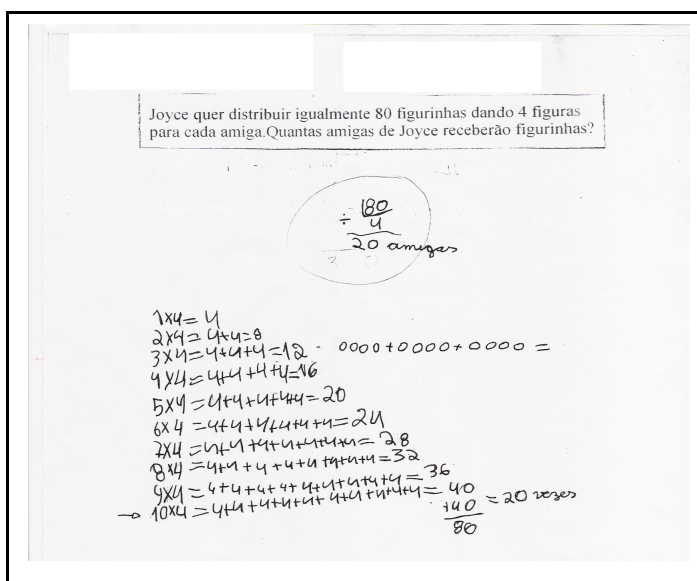 Joyce quer distribuir igualmente 80 figurinhas dando 4 figuras
para cada amiga.Quantas amigas de Joyce receberão figurinhas?
÷ 80
4
20 amigas
1x4= 4
2x4= 4+4=8
3x4=4+4+4=12 0000+0000+0000 =
4x4=4+4+4+4=16
5x4=4+4+4+4+4=20
6x4=4+4+4+4+4+4=24
7x4=4+4+4+4+4+4+4=28
8x4=4+4+4+4+4+4+4+4=32
9x4=4+4+4+4+4+4+4+4+4=36
→ 10x4=4+4+4+4+4+4+4+4+4+4=40
+40 = 20 vezes
80